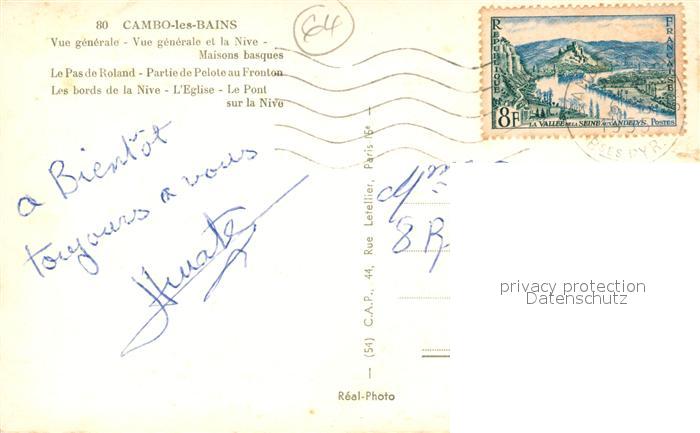 64
80 CAMBO-les-BAINS
Vue générale - Vue générale et la Nive -
Maisons basques
Le Pas de Roland - Partie de Pelote au Fronton
Les bords de la Nive - L'Eglise - Le Pont
sur la Nive
a Bientôt
toujours a vous
(54) C.A.P., 44, Rue Letellier, Paris 15e
Réal-Photo
REPUBLIQUE
FRANÇAISE
8F
LA VALLÉE DE LA SEINE AUX ANDELYS
POSTES
PYR.
Mme
8 R
privacy protection
Datenschutz